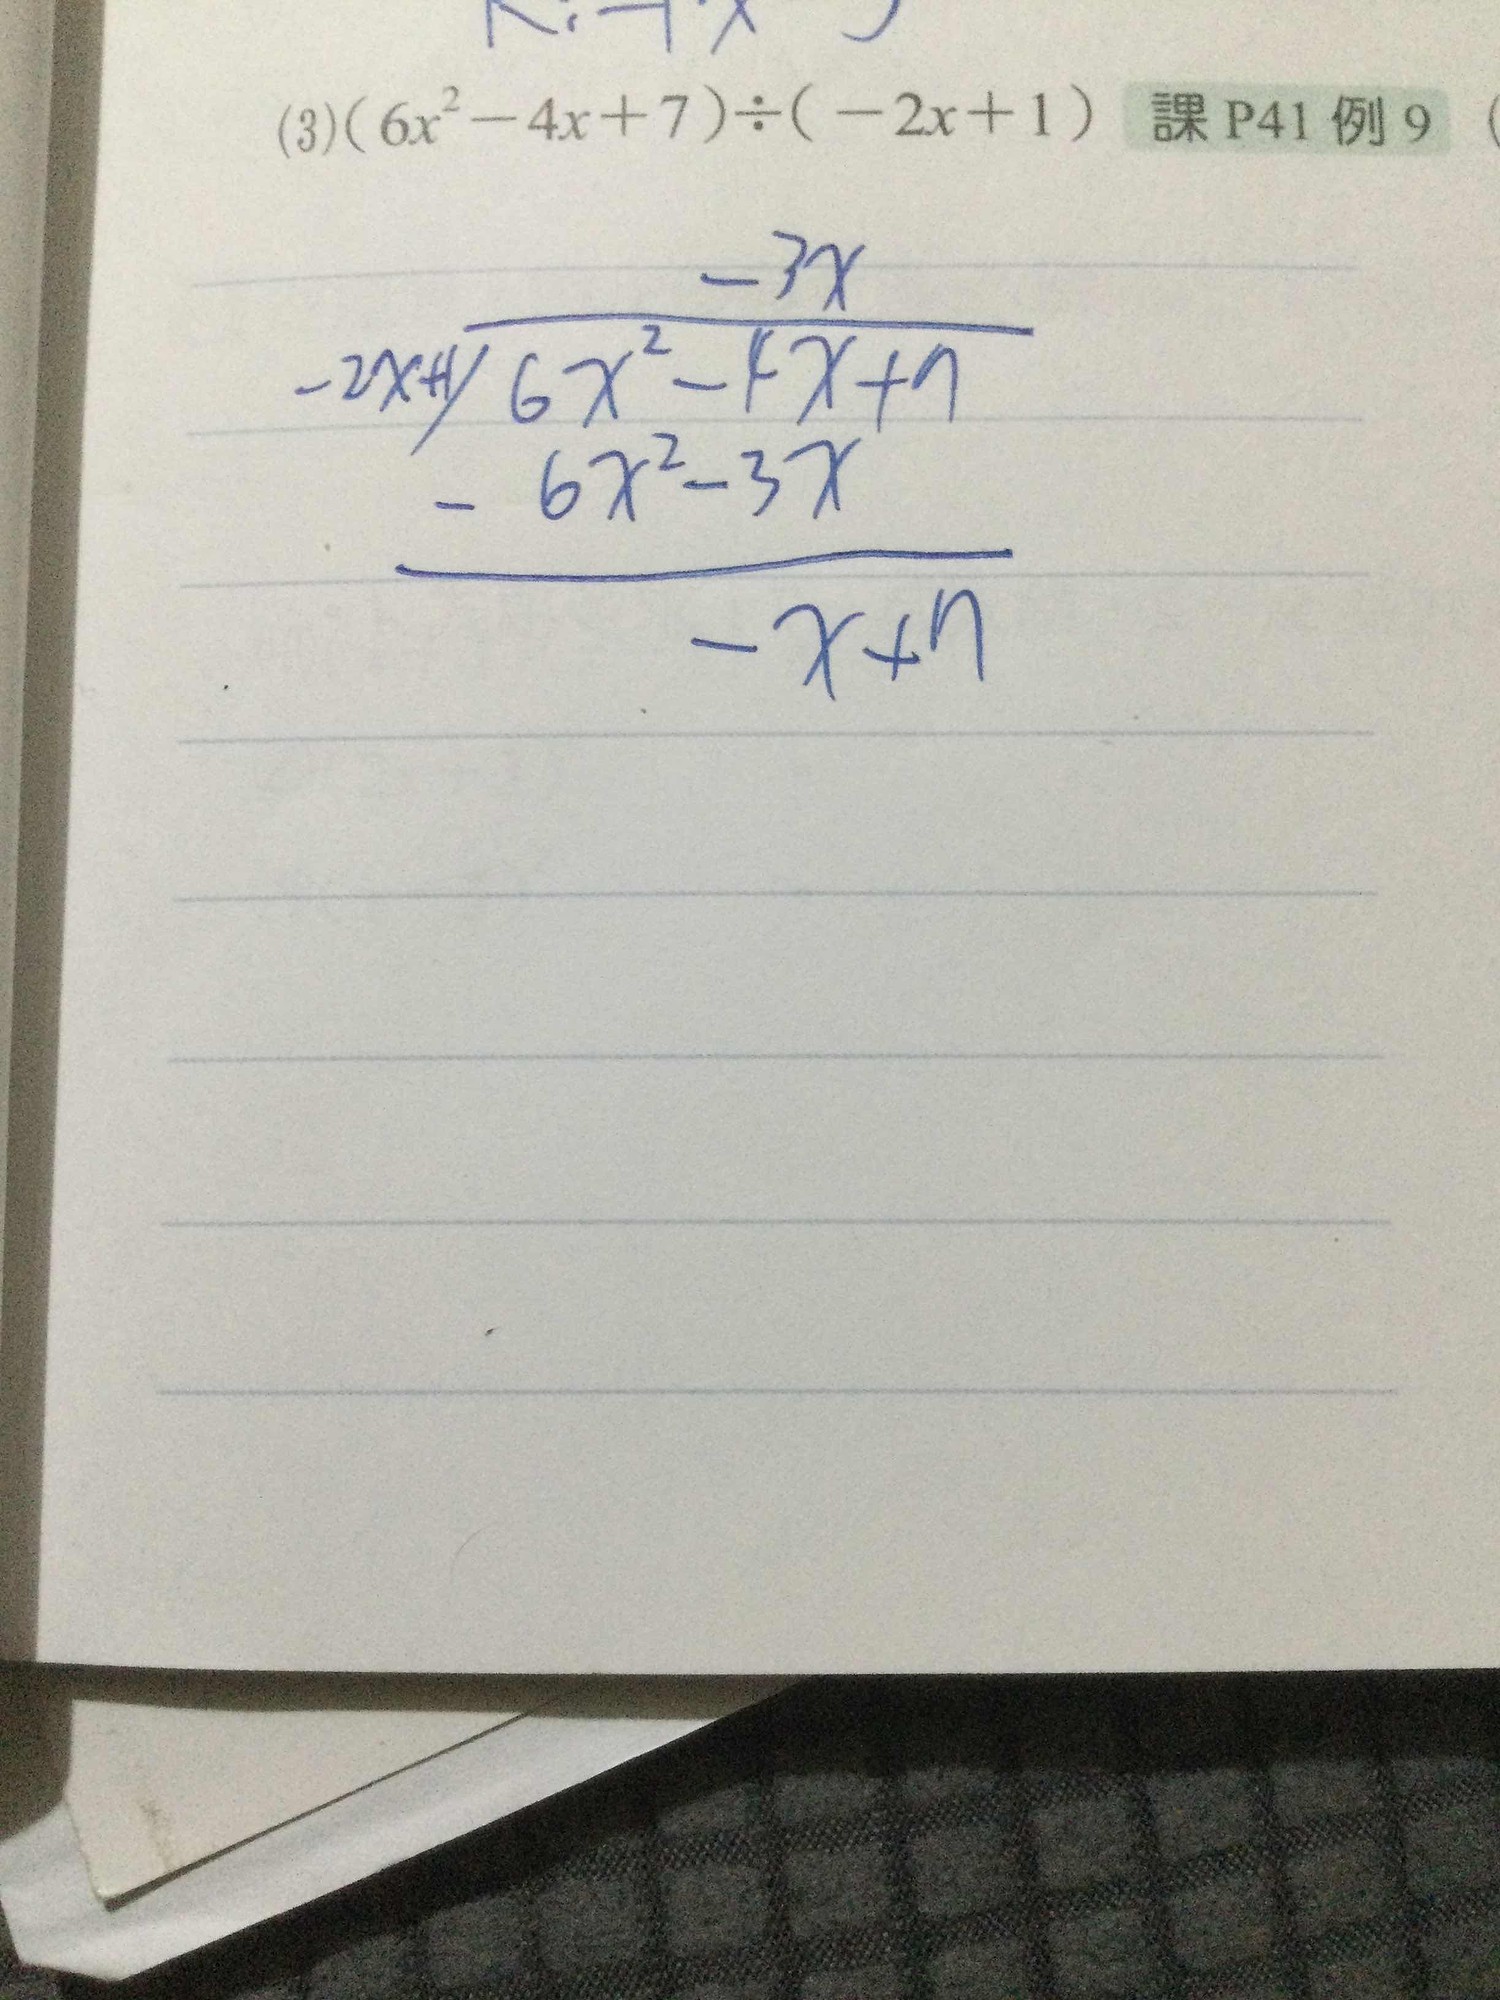 (3)(6x²－4x＋7)÷(－2x＋1) 課 P41 例 9 (
-3x
-2x+1 / 6x²-4x+7
- 6x²-3x
-x+7